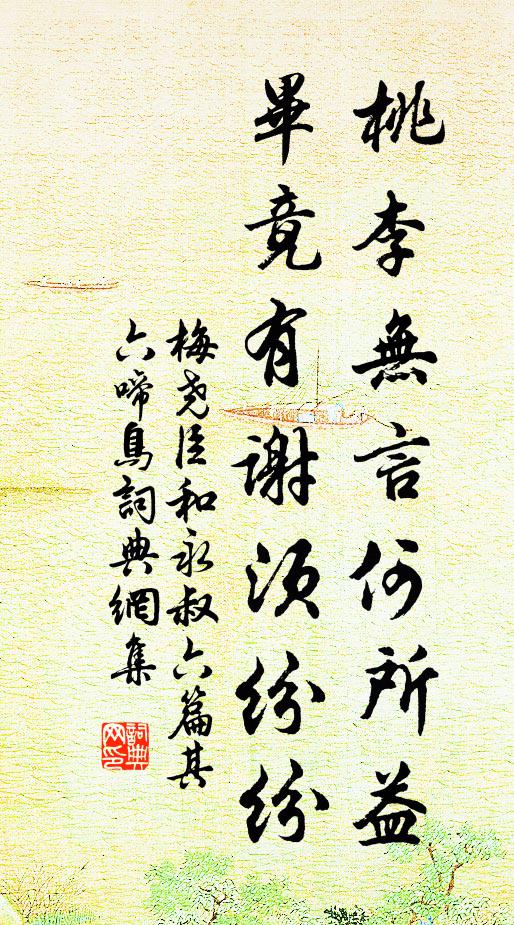 桃李無言何所益
畢竟有謝須紛紛
梅堯臣和永叔六篇其
六啼鳥詞典網集
詞典
网印